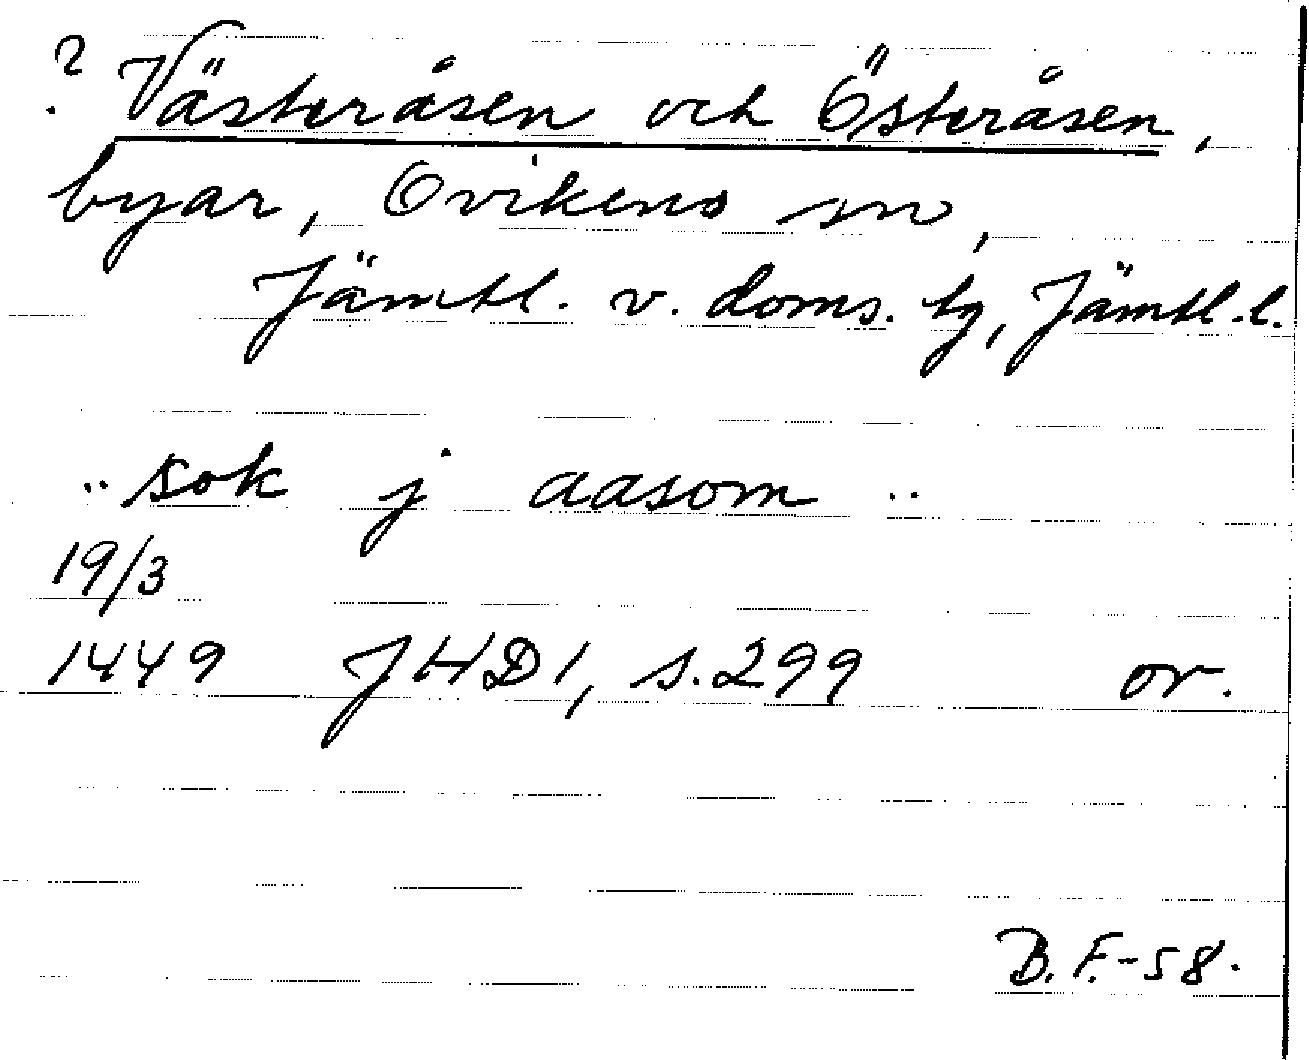 ? Västeråsen och Österåsen,
byar, Ovikens sn,
Jämtl. v. doms. tg, Jämtl. l.
.. sok j aasom ..
19/3
1449 JHD 1, s. 299 or.
B. F. -58.